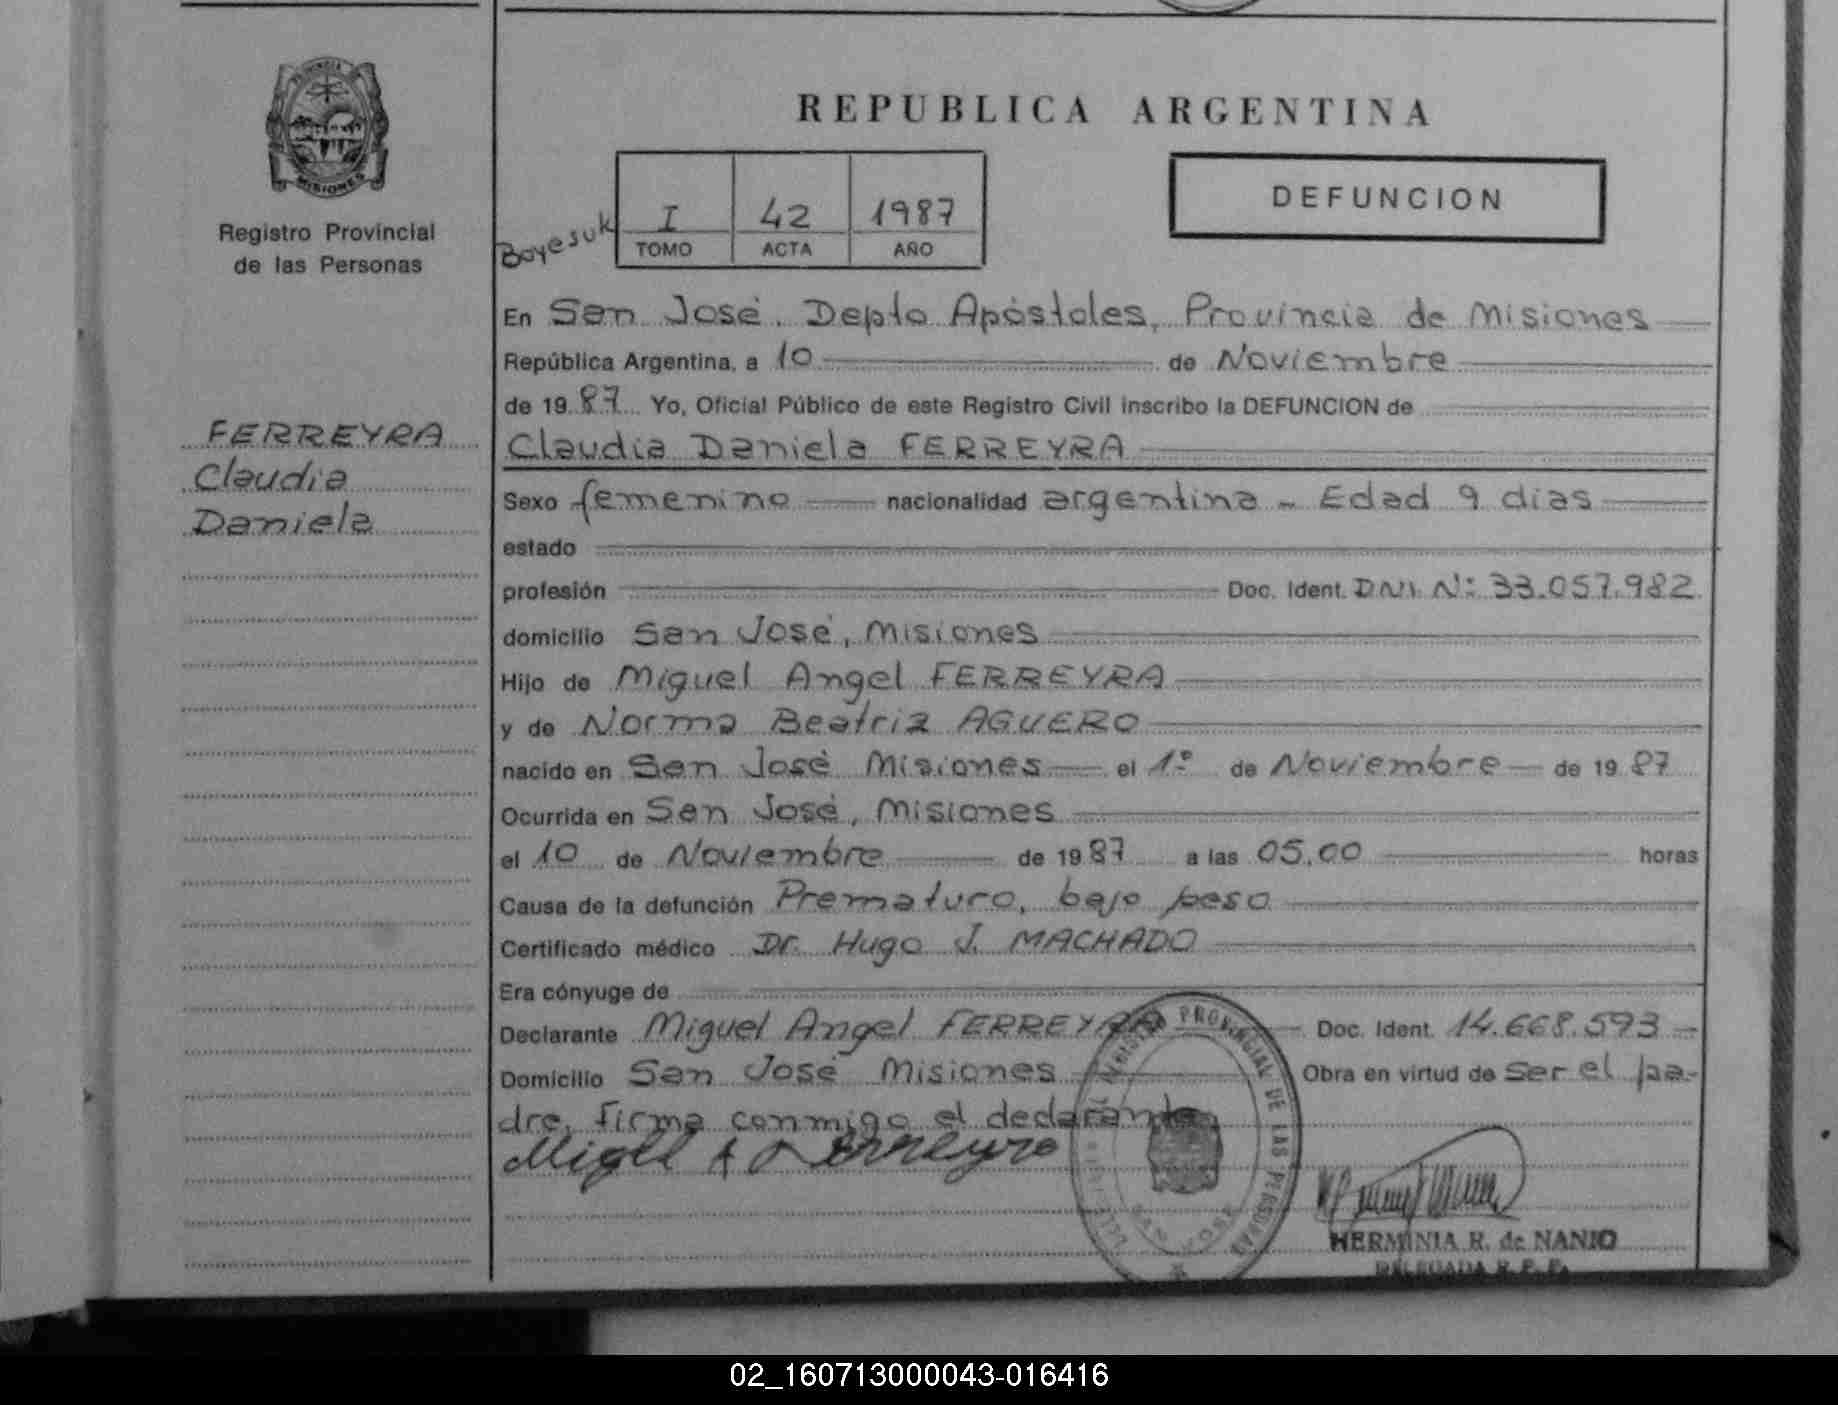 PROVINCIA DE
MISIONES
Registro Provincial
de las Personas
FERREYRA
Claudia
Daniela
REPUBLICA ARGENTINA
DEFUNCION
Boyesuk
I 42 1987
TOMO ACTA AÑO
En San José, Depto Apóstoles, Provincia de Misiones
República Argentina, a 10 de Noviembre
de 19 87 Yo, Oficial Público de este Registro Civil inscribo la DEFUNCION de
Claudia Daniela FERREYRA
Sexo femenino nacionalidad argentina - Edad 9 dias
estado
profesión Doc. Ident. DNI. N: 33.057.982
domicilio San José, Misiones
Hijo de Miguel Angel FERREYRA
y de Norma Beatriz AGUERO
nacido en San José Misiones el 1º de Noviembre de 19 87
Ocurrida en San José, Misiones
el 10 de Noviembre de 19 87 a las 05,00 horas
Causa de la defunción Prematuro, bajo peso
Certificado médico Dr. Hugo J. MACHADO
Era cónyuge de
Declarante Miguel Angel FERREYRA Doc. Ident. 14.668.593
Domicilio San José Misiones Obra en virtud de ser el pa-
dre, firma conmigo el declarante
Migel A Ferreyra
REGISTRO PROVINCIAL DE LAS PERSONAS
SAN JOSE
HERMINIA R. de NANIO
DELEGADA R. P. P.
02_160713000043-016416